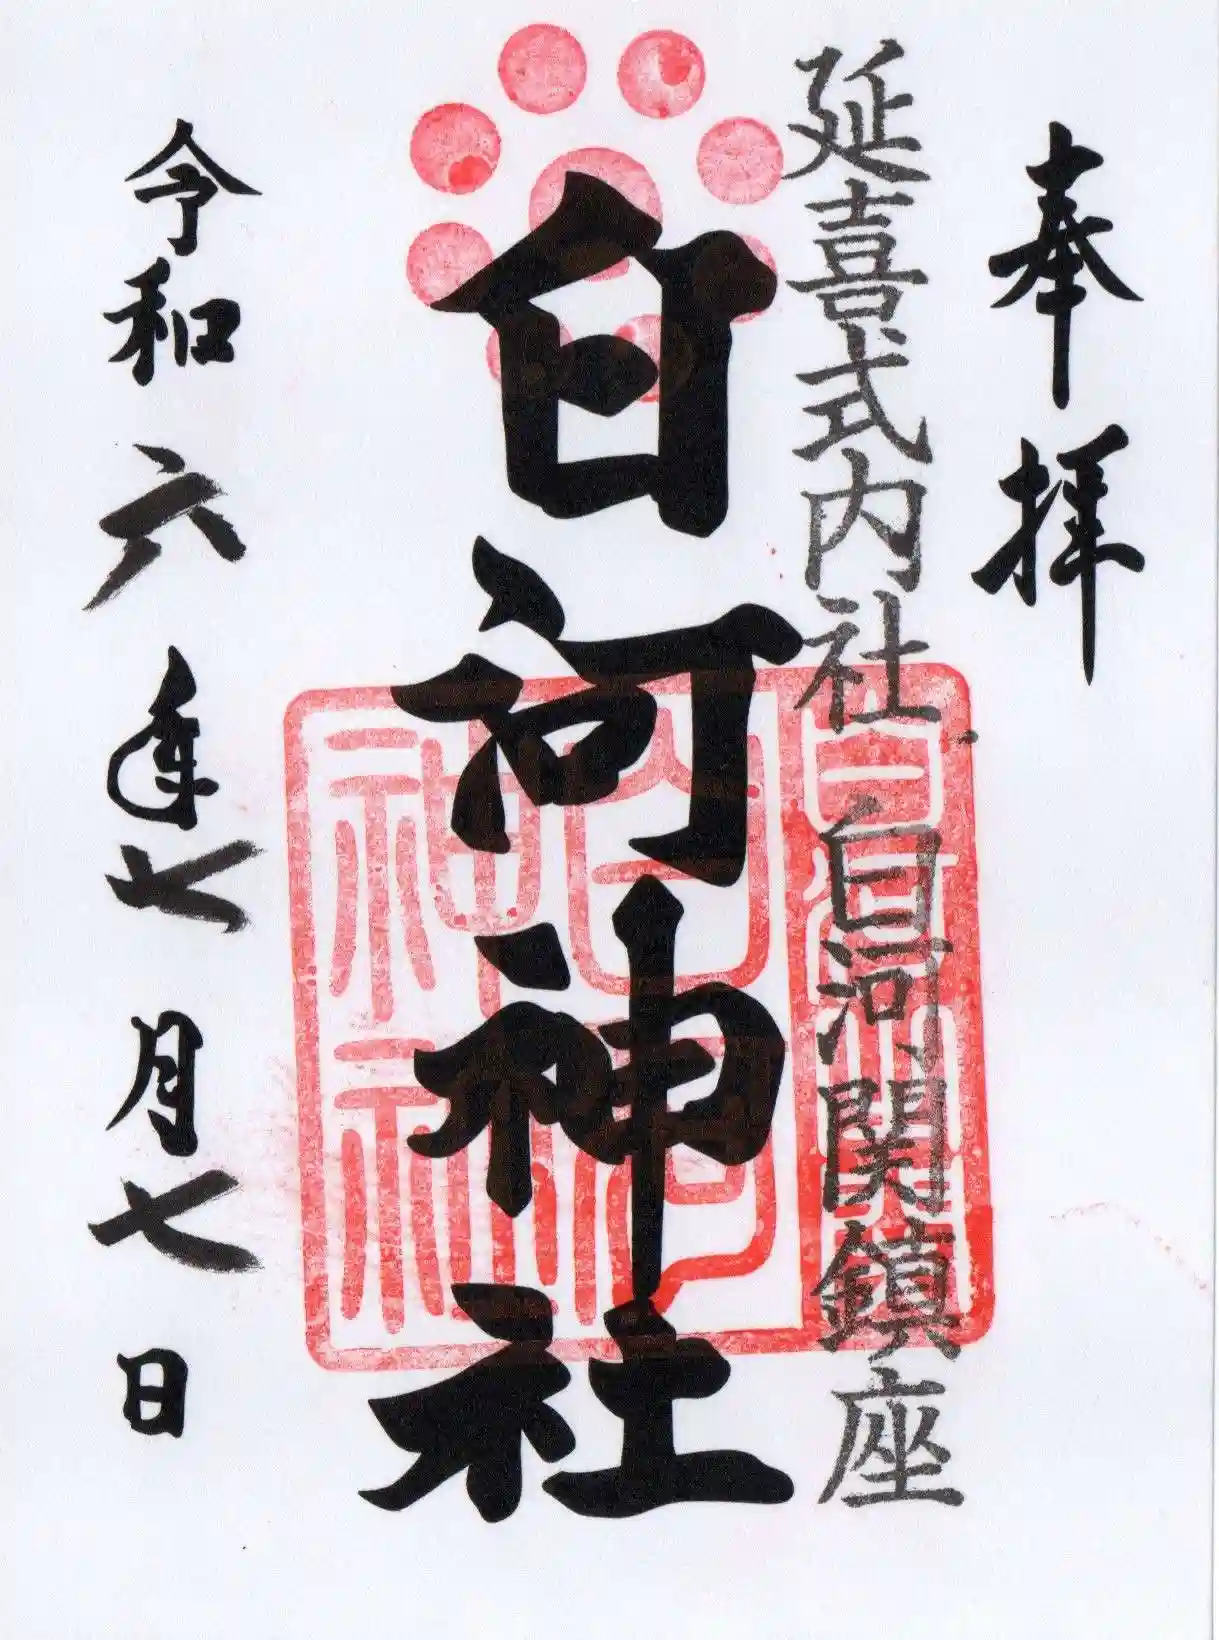 奉拝
延喜式内社 白河関鎮座
白河神社
令和六年七月七日